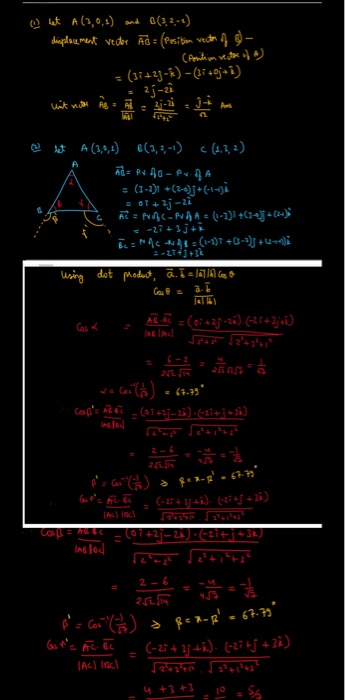 (1) Let A(3,0,1) and B(3,2,-1)
displacement vector AB = (Position vector of B) -
(Position vector of A)
= (3i+2j-k) - (3i+0j+k)
= 2j-2k
unit vector AB = AB/|AB| = 2j-2k/√2²+2² = j-k/√2 Ans
(2) Let A(3,0,1) B(3,2,-1) C(1,3,2)
A
AB = P.V. of B - P.V. of A
= (3-3)i+(2-0)j+(-1-1)k
= 0i+2j-2k
AC = P.V of C - P.V of A = (1-3)i+(3-0)j+(2-1)k
= -2i+3j+k
BC = P.V of C - P.V of B = (1-3)i+(3-2)j+(2+1)k
= -2i+j+3k
B C
using dot product, a.b = |a||b| cos θ
Cos θ = a.b/|a||b|
Cos α = AB.AC/|AB||AC| = (0i+2j-2k)(-2i+3j+k)/√2²+2² √2²+3²+1²
= 6-2/2√2√14 = 4/2√2√2√7 = 1/√7
α = Cos⁻¹(1/√7) = 67.79°
Cosβ' = AB.BC/|AB||BC| = (0i+2j-2k).(-2i+j+3k)/√2²+2² √2²+1²+3²
= 2-6/2√2√14 = -4/4√7 = -1/√7
β' = Cos⁻¹(-1/√7) ⇒ β = π-β' = 67.79°
Cosγ' = AC.BC/|AC||BC| = (-2i+3j+k).(-2i+j+3k)
Cosβ = AB.BC/|AB||BC| = (0i+2j-2k).(-2i+j+3k)/√2²+2² √2²+1²+3²
= 2-6/2√2√14 = -4/4√7 = -1/√7
β' = Cos⁻¹(-1/√7) ⇒ β = π-β' = 67.79°
Cosγ' = AC.BC/|AC||BC| = (-2i+3j+k).(-2i+j+3k)/√2²+3²+1² . √2²+1²+3²
= 4+3+3 = 10 = 5